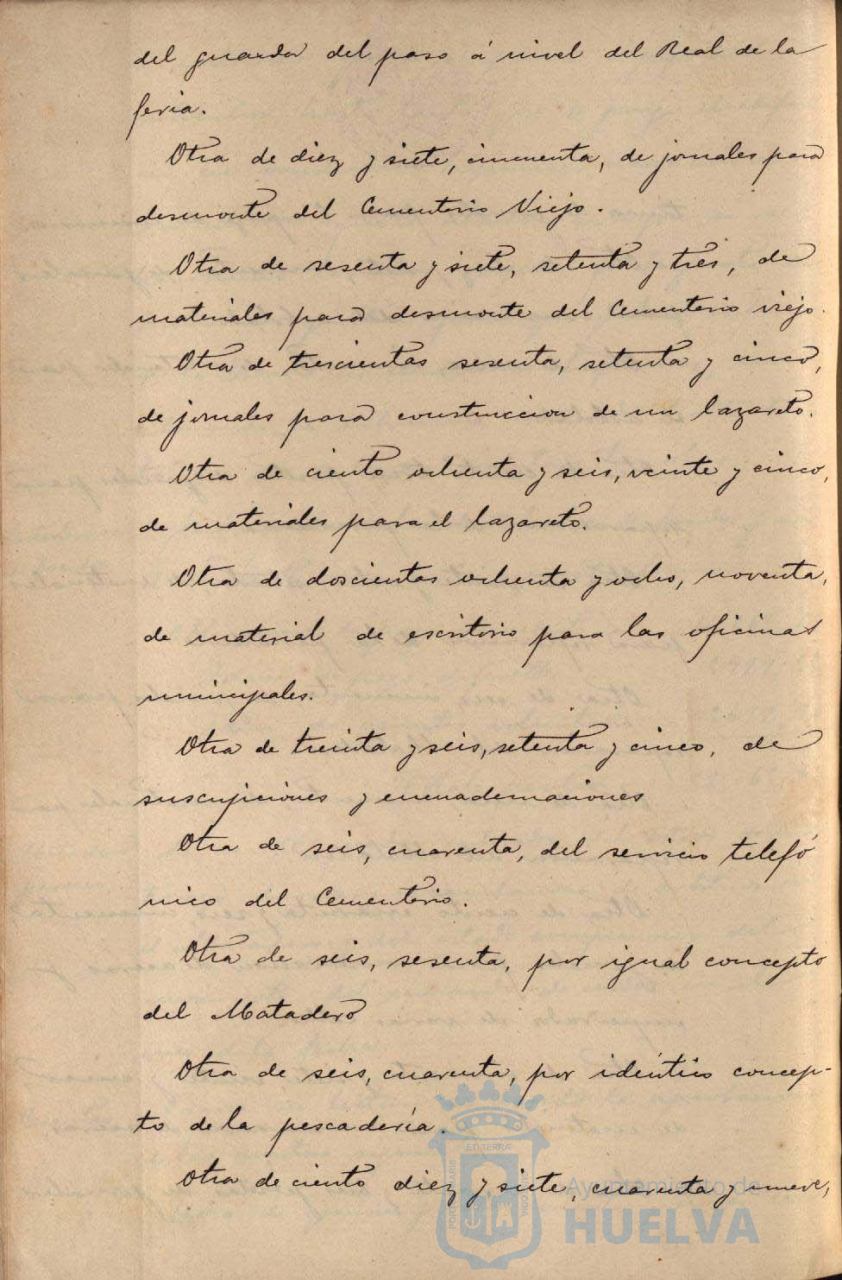 del guarda del paso á nivel del Real de la
feria.
Otra de diez y siete, cincuenta, de jornales para
desmonte del Cementerio Viejo.
Otra de sesenta y siete, setenta y tres, de
materiales para desmonte del Cementerio viejo.
Otra de trescientas sesenta, setenta y cinco,
de jornales para construccion de un lazareto.
Otra de ciento ochenta y seis, veinte y cinco,
de materiales para el lazareto.
Otra de doscientas ochenta y ocho, noventa,
de material de escritorio para las oficinas
municipales.
Otra de treinta y seis, setenta y cinco, de
suscripciones y encuadernaciones
Otra de seis, cuarenta, del servicio telefó
nico del Cementerio.
Otra de seis, sesenta, por igual concepto
del Matadero
Otra de seis, cuarenta, por idéntico concep-
to de la pescadería.
Otra de ciento diez y siete, cuarenta y nueve,
Ayuntamiento de
HUELVA